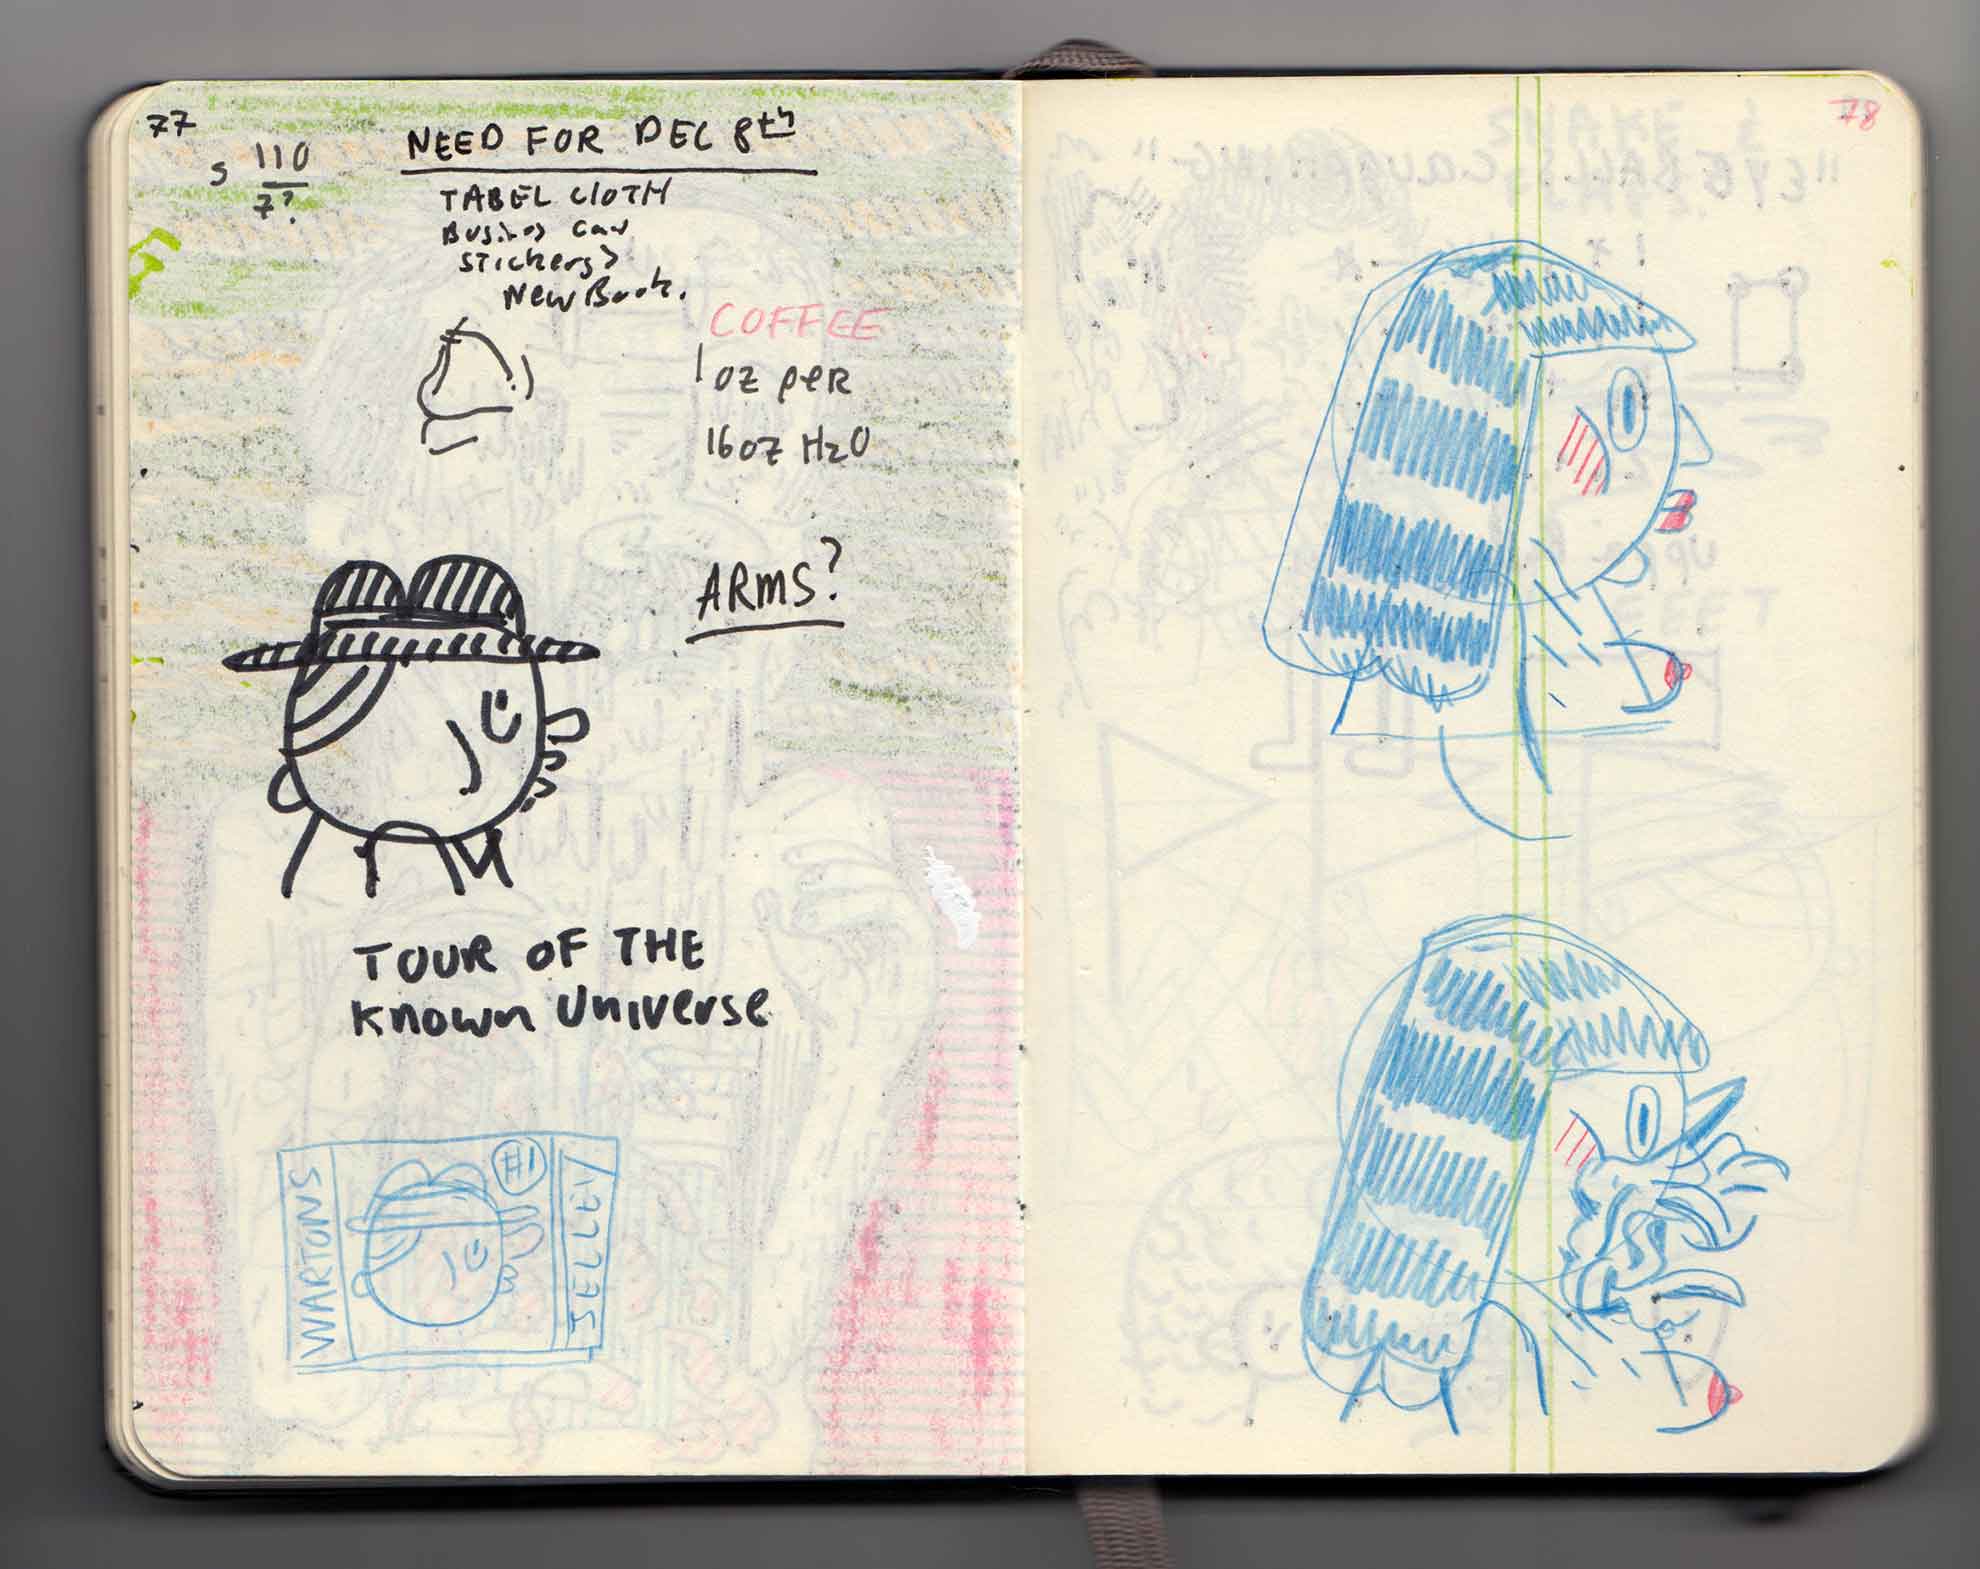 77
5 110
7?
NEED FOR DEC 8th
TABEL CLOTH
Stickers
New Book.
COFFEE
1 oz per
16oz H2O
ARMS?
TOUR OF THE
KNOWN UNIVERSE
WARTONS
#1
JELLEY
78